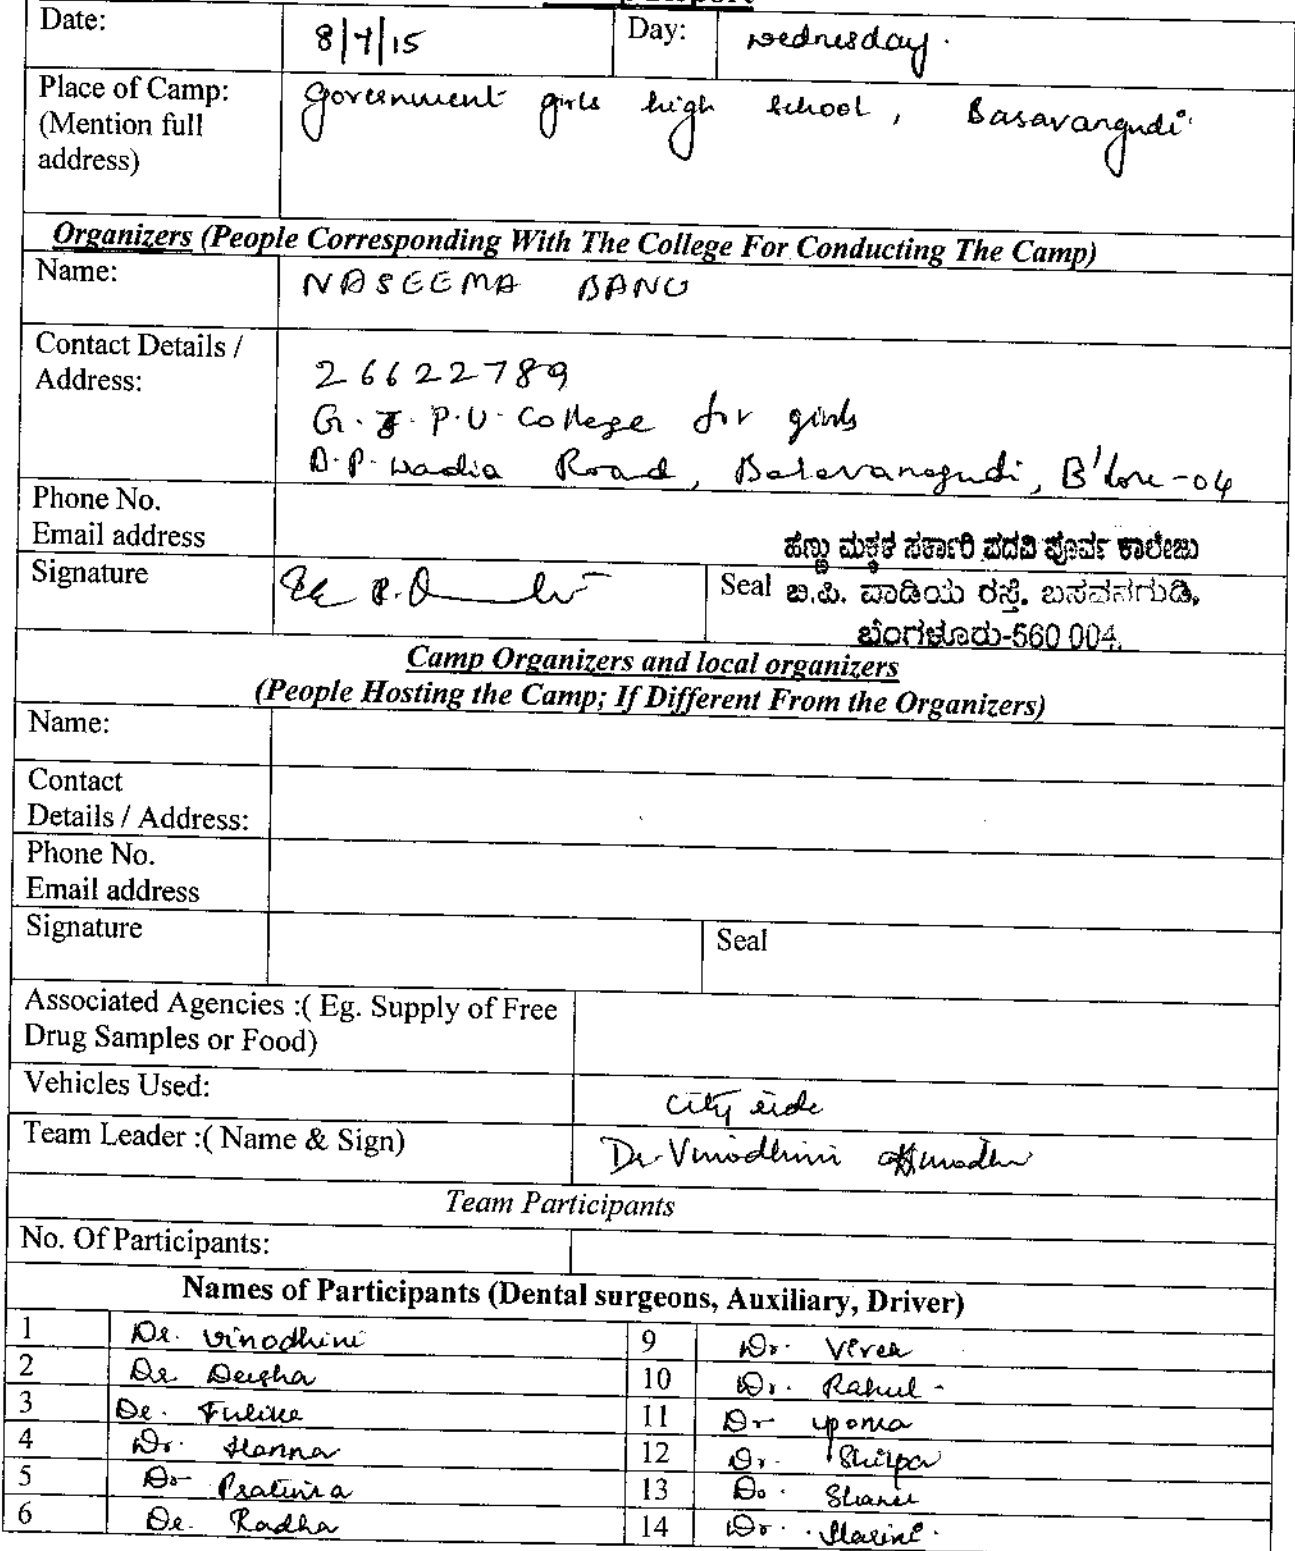 Date: 8/7/15 Day: wednesday.
Place of Camp: Government girls high school, Basavangudi
(Mention full
address)
Organizers (People Corresponding With The College For Conducting The Camp)
Name: NASEEMA BANU
Contact Details /
Address: 26622789
G. J. P.U. College for girls
B.P. Wadia Road, Basavanagudi, B'lore-04
Phone No.
Email address
ಹೆಣ್ಣು ಮಕ್ಕಳ ಸರ್ಕಾರಿ ಪದವಿ ಪೂರ್ವ ಕಾಲೇಜು
Signature Seal ಬಿ.ಪಿ. ವಾಡಿಯ ರಸ್ತೆ, ಬಸವನಗುಡಿ,
ಬೆಂಗಳೂರು-560 004.
Camp Organizers and local organizers
(People Hosting the Camp; If Different From the Organizers)
Name:
Contact
Details / Address:
Phone No.
Email address
Signature Seal
Associated Agencies :( Eg. Supply of Free
Drug Samples or Food)
Vehicles Used: City ride
Team Leader :( Name & Sign) Dr Vinodhini
Team Participants
No. Of Participants:
Names of Participants (Dental surgeons, Auxiliary, Driver)
1 Dr. Vinodhini 9 Dr. Vivek
2 Dr 10 Dr. Rahul
3 Dr. 11 Dr upoma
4 Dr. Hanna 12 Dr. Shilpa
5 Dr Pratima 13 Dr.
6 Dr. Radha 14 Dr. Harini